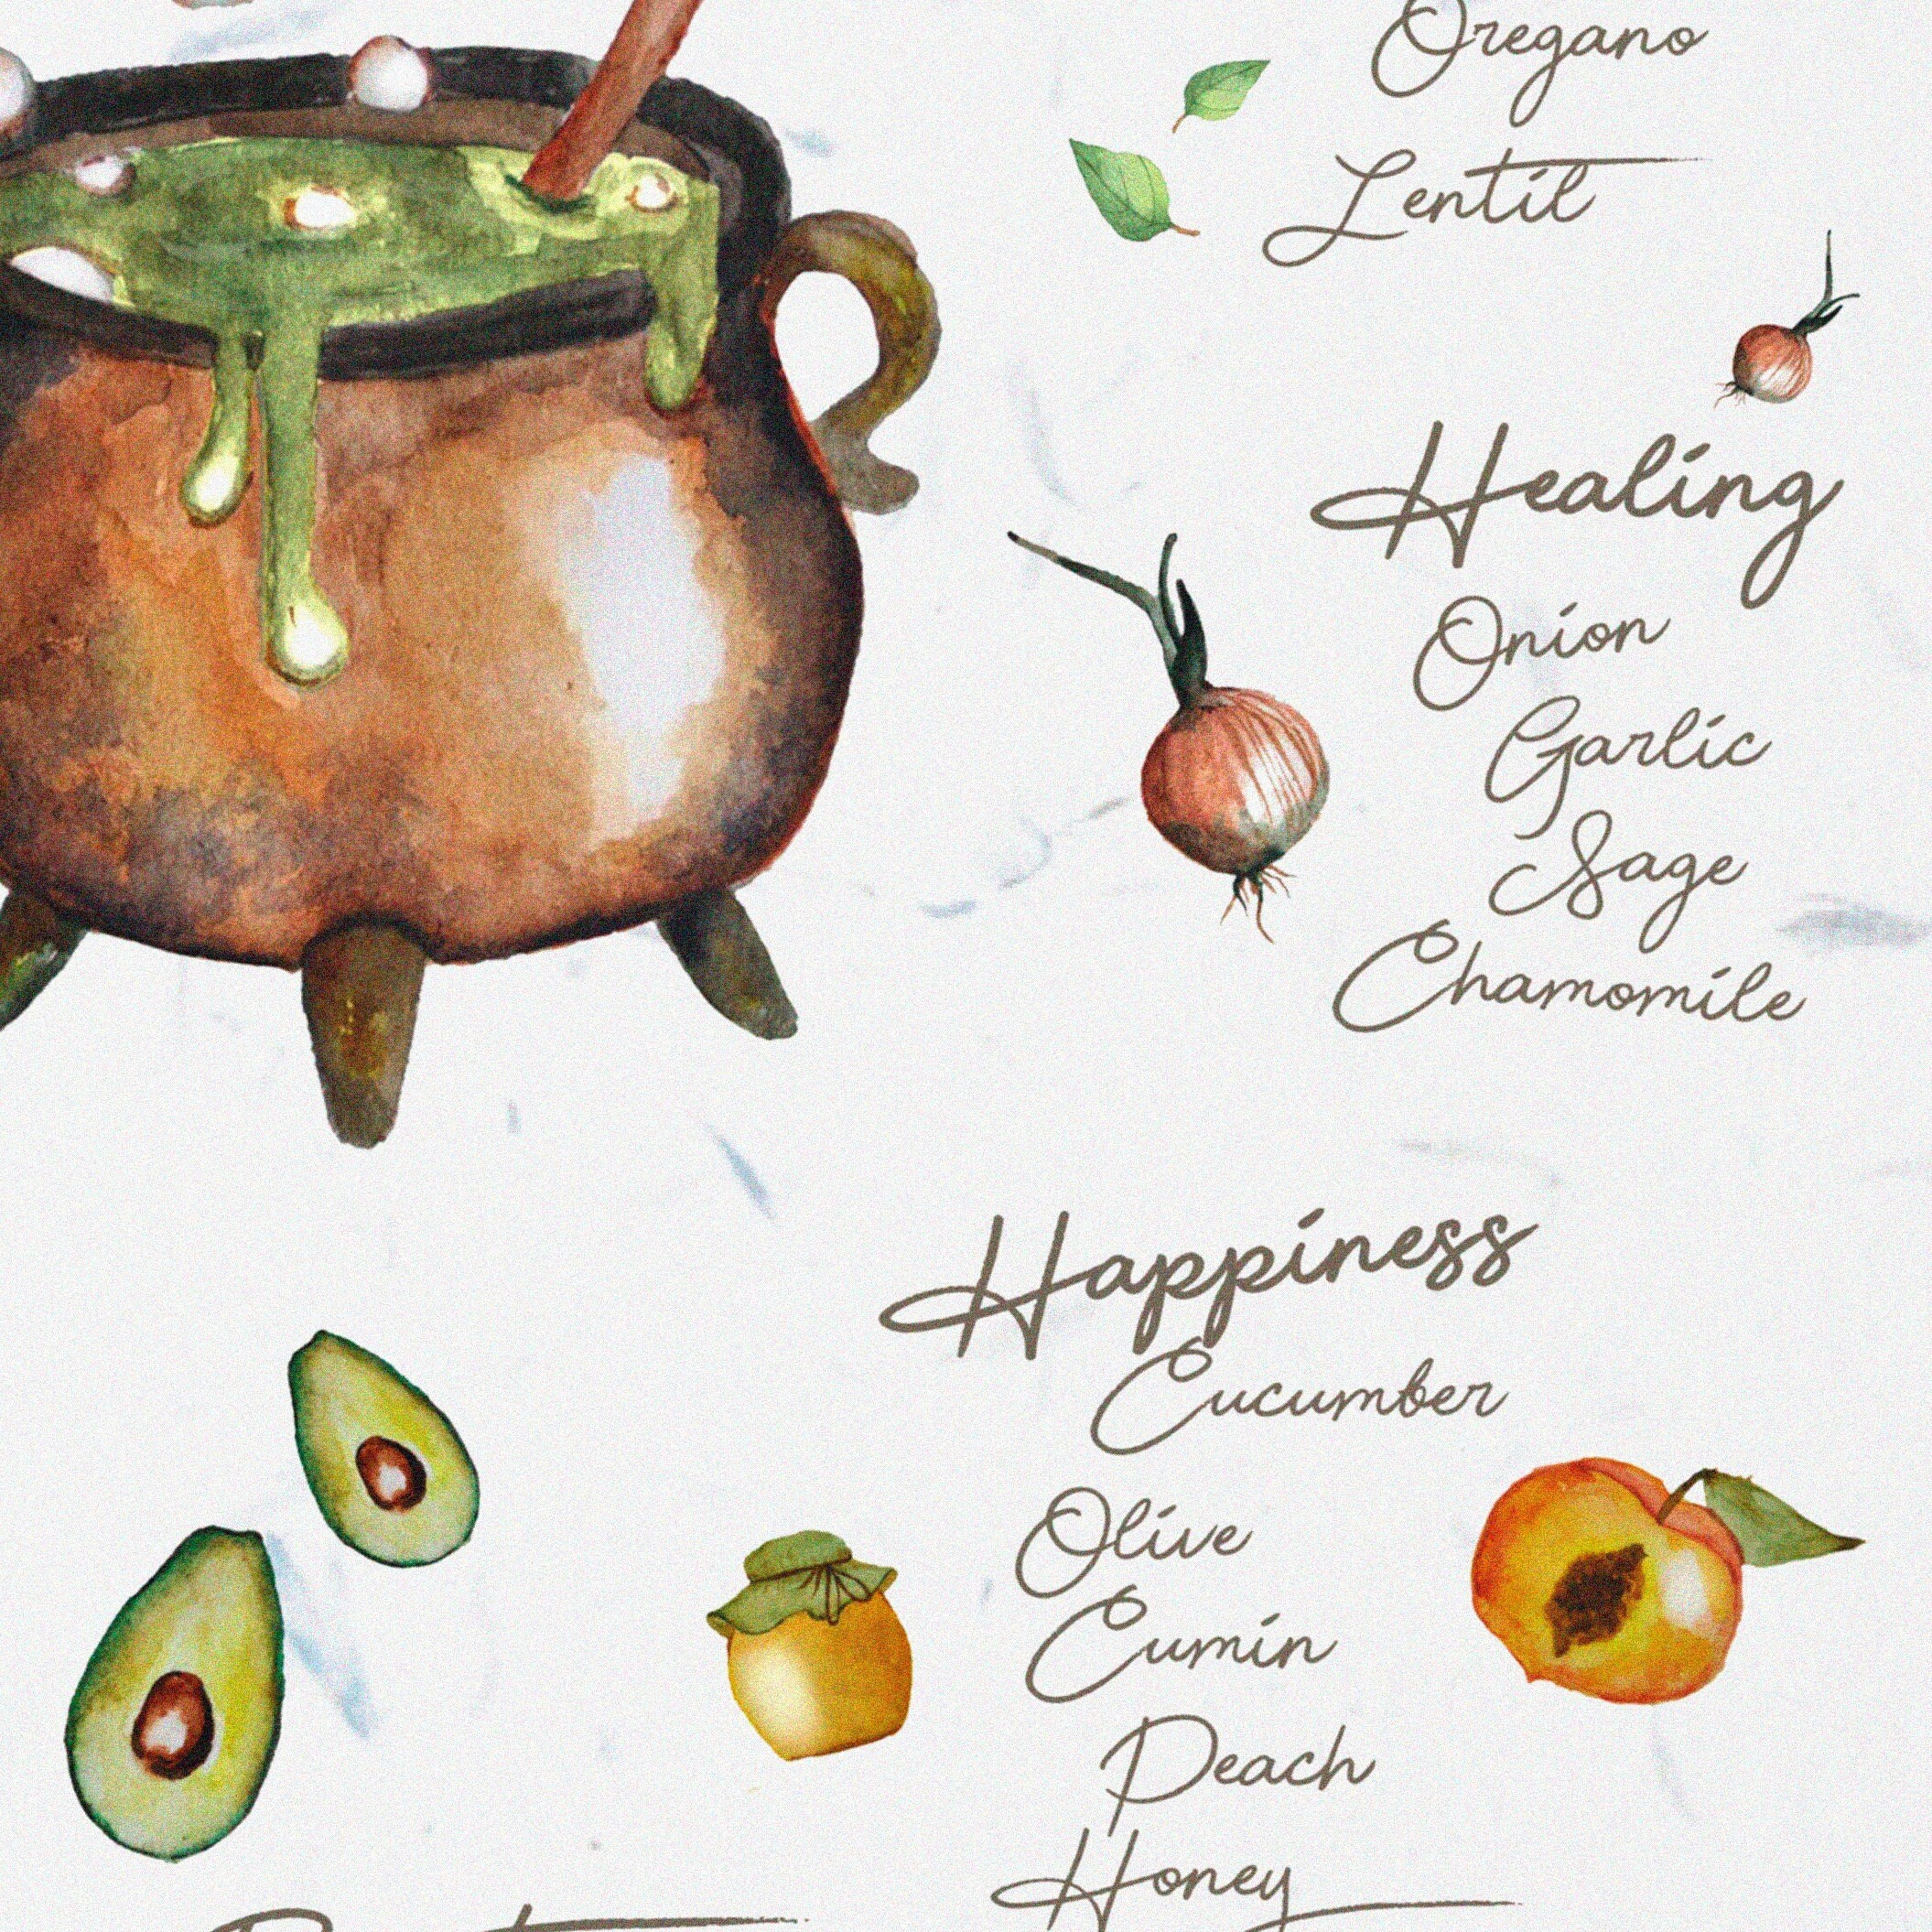 Oregano
Lentil
Healing
Onion
Garlic
Sage
Chamomile
Happiness
Cucumber
Olive
Cumin
Peach
Honey